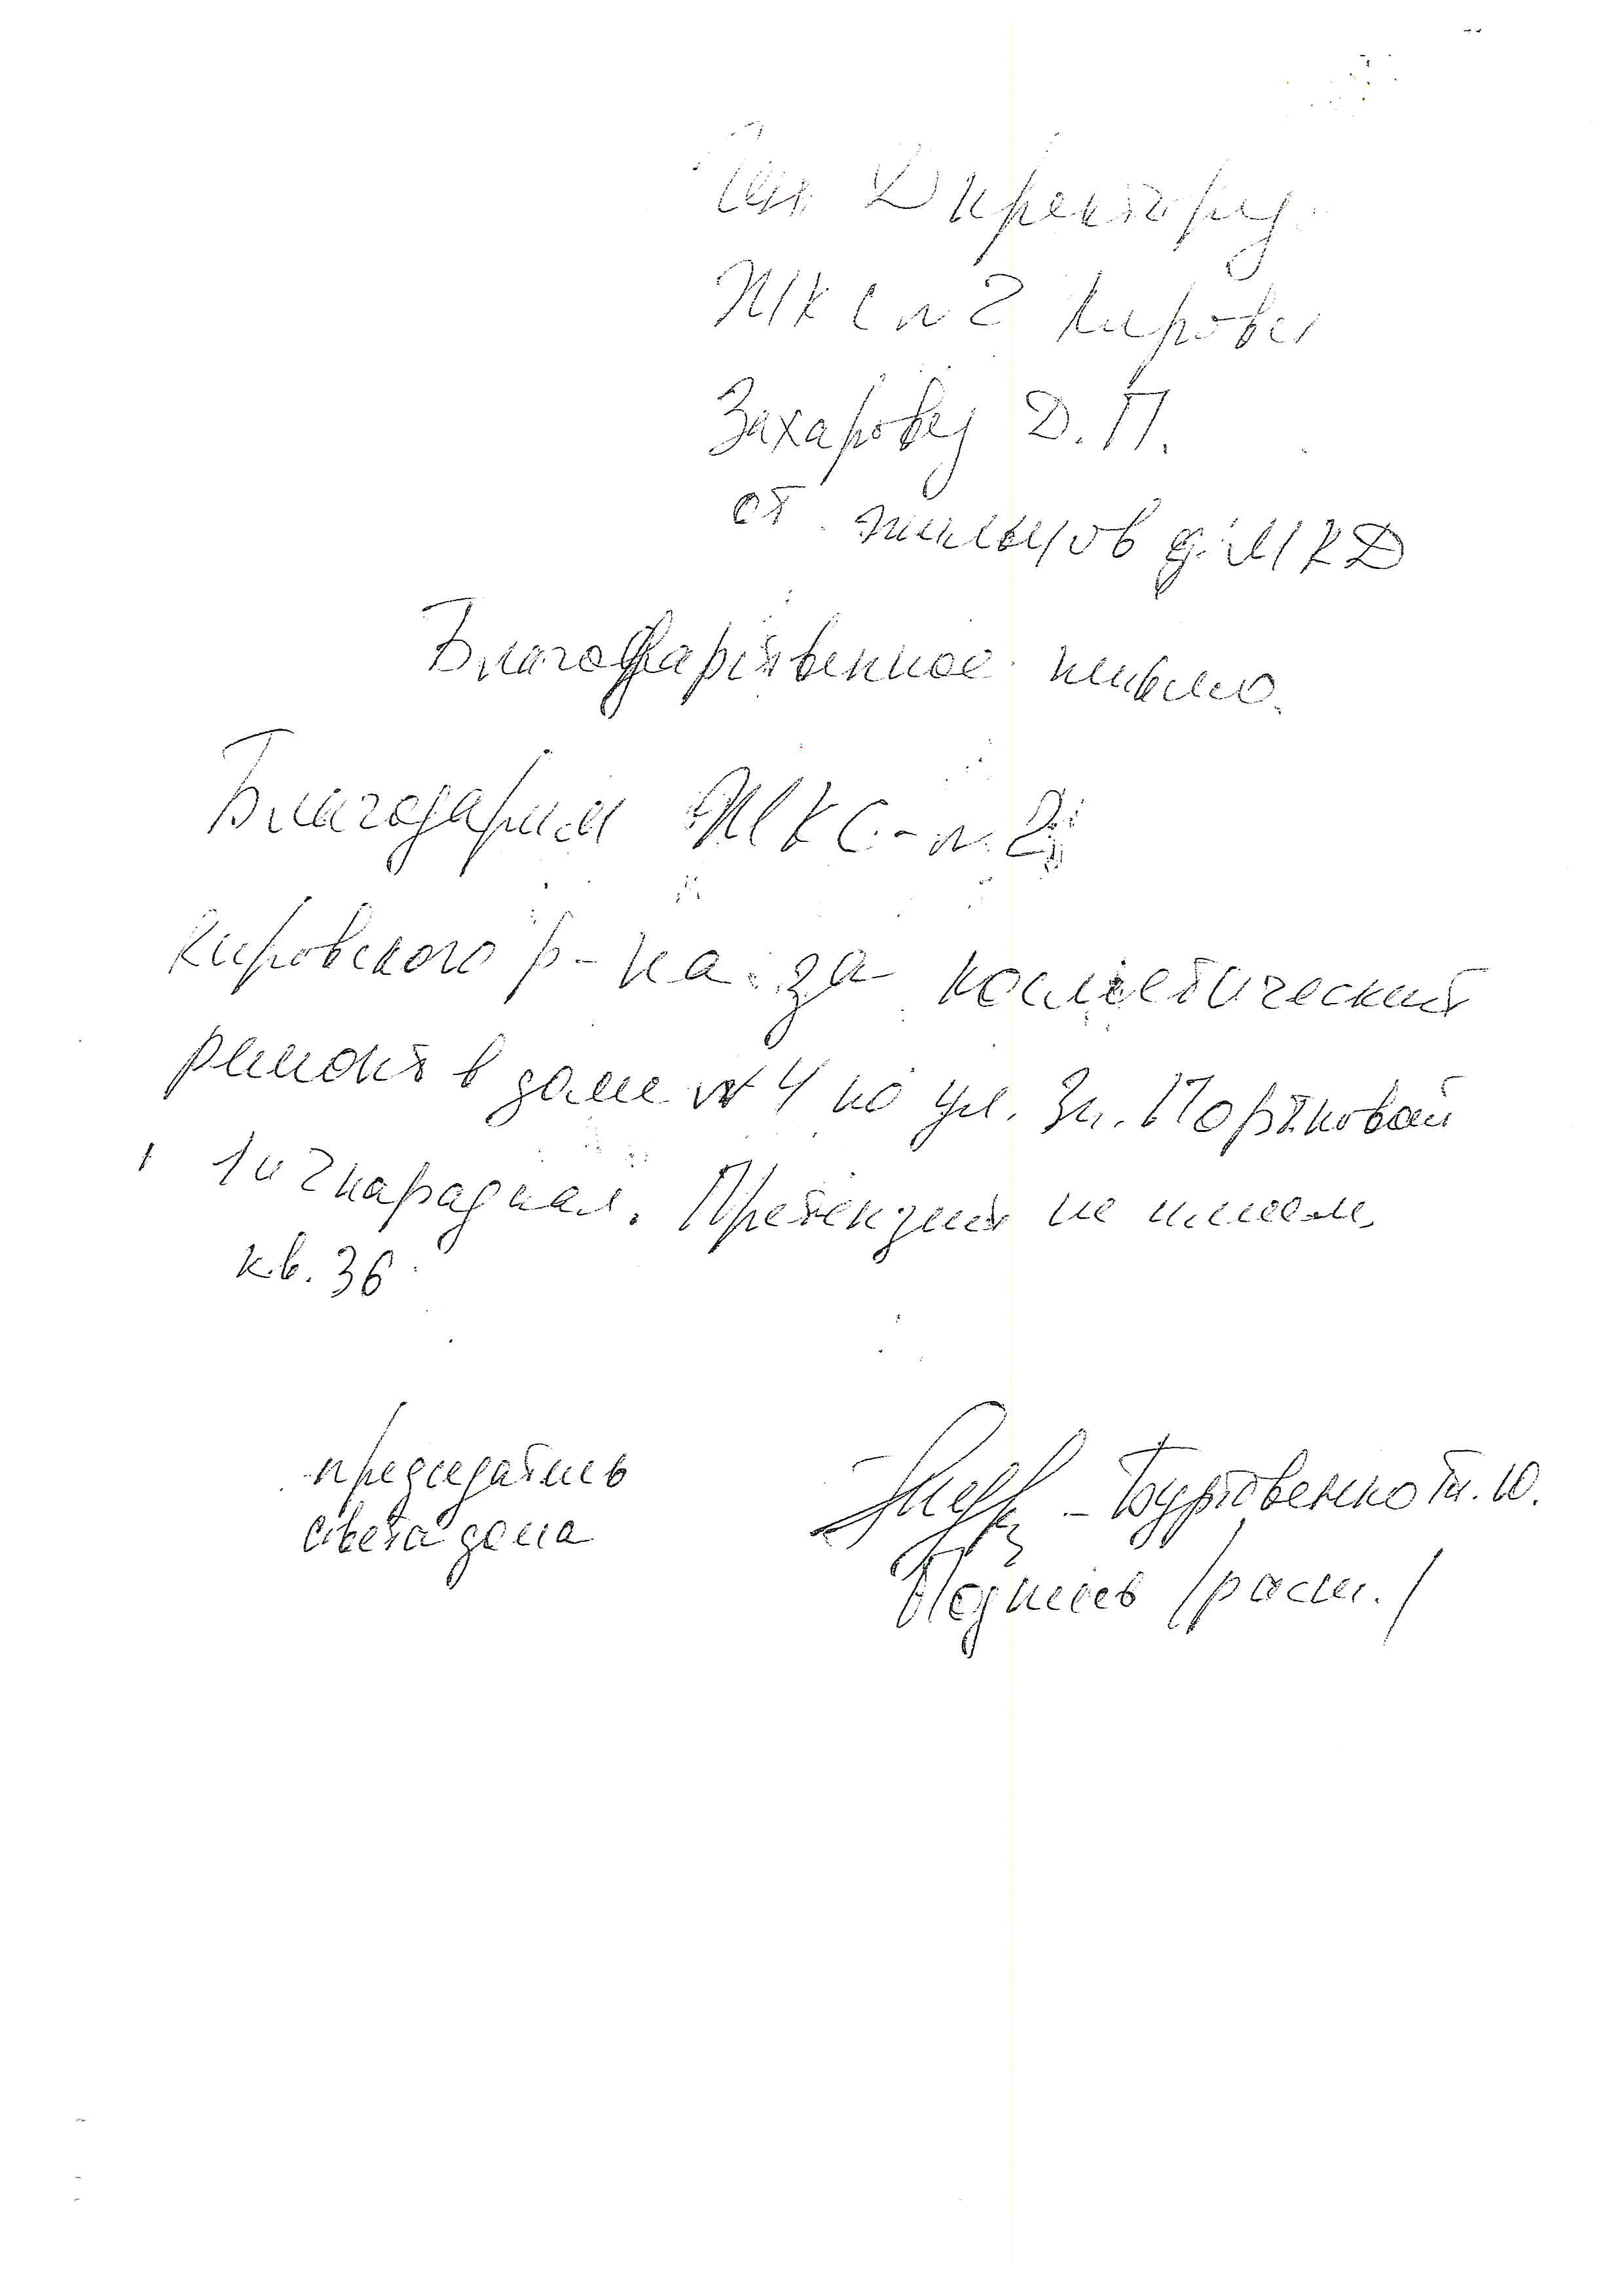 Ген Директору
ЖКС №2 Кировс
Захарову Д.П.
от жильцов д. МКД
Благодарственное письмо.
Благодарим ЖКС-№2
Кировского р-на за косметический
ремонт в доме №4 по ул. Зн. Портновой
1 и 2 парадная. Претензий не имеем.
кв. 36
председатель
совета дома
Буртовенко Т. Ю.
Подпись /расш./